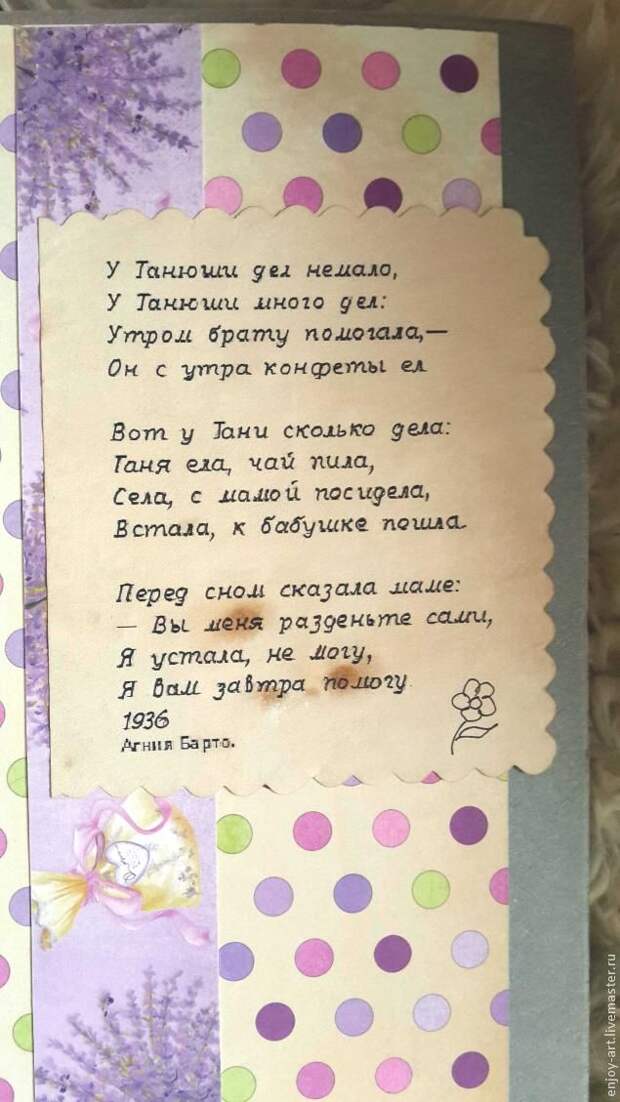 У Танюши дел немало,
У Танюши много дел:
Утром брату помогала,—
Он с утра конфеты ел

Вот у Тани сколько дела:
Таня ела, чай пила,
Села, с мамой посидела,
Встала, к бабушке пошла

Перед сном сказала маме:
— Вы меня разденьте сами,
Я устала, не могу,
Я вам завтра помогу.
1936
Агния Барто.
enjoy-art.livemaster.ru